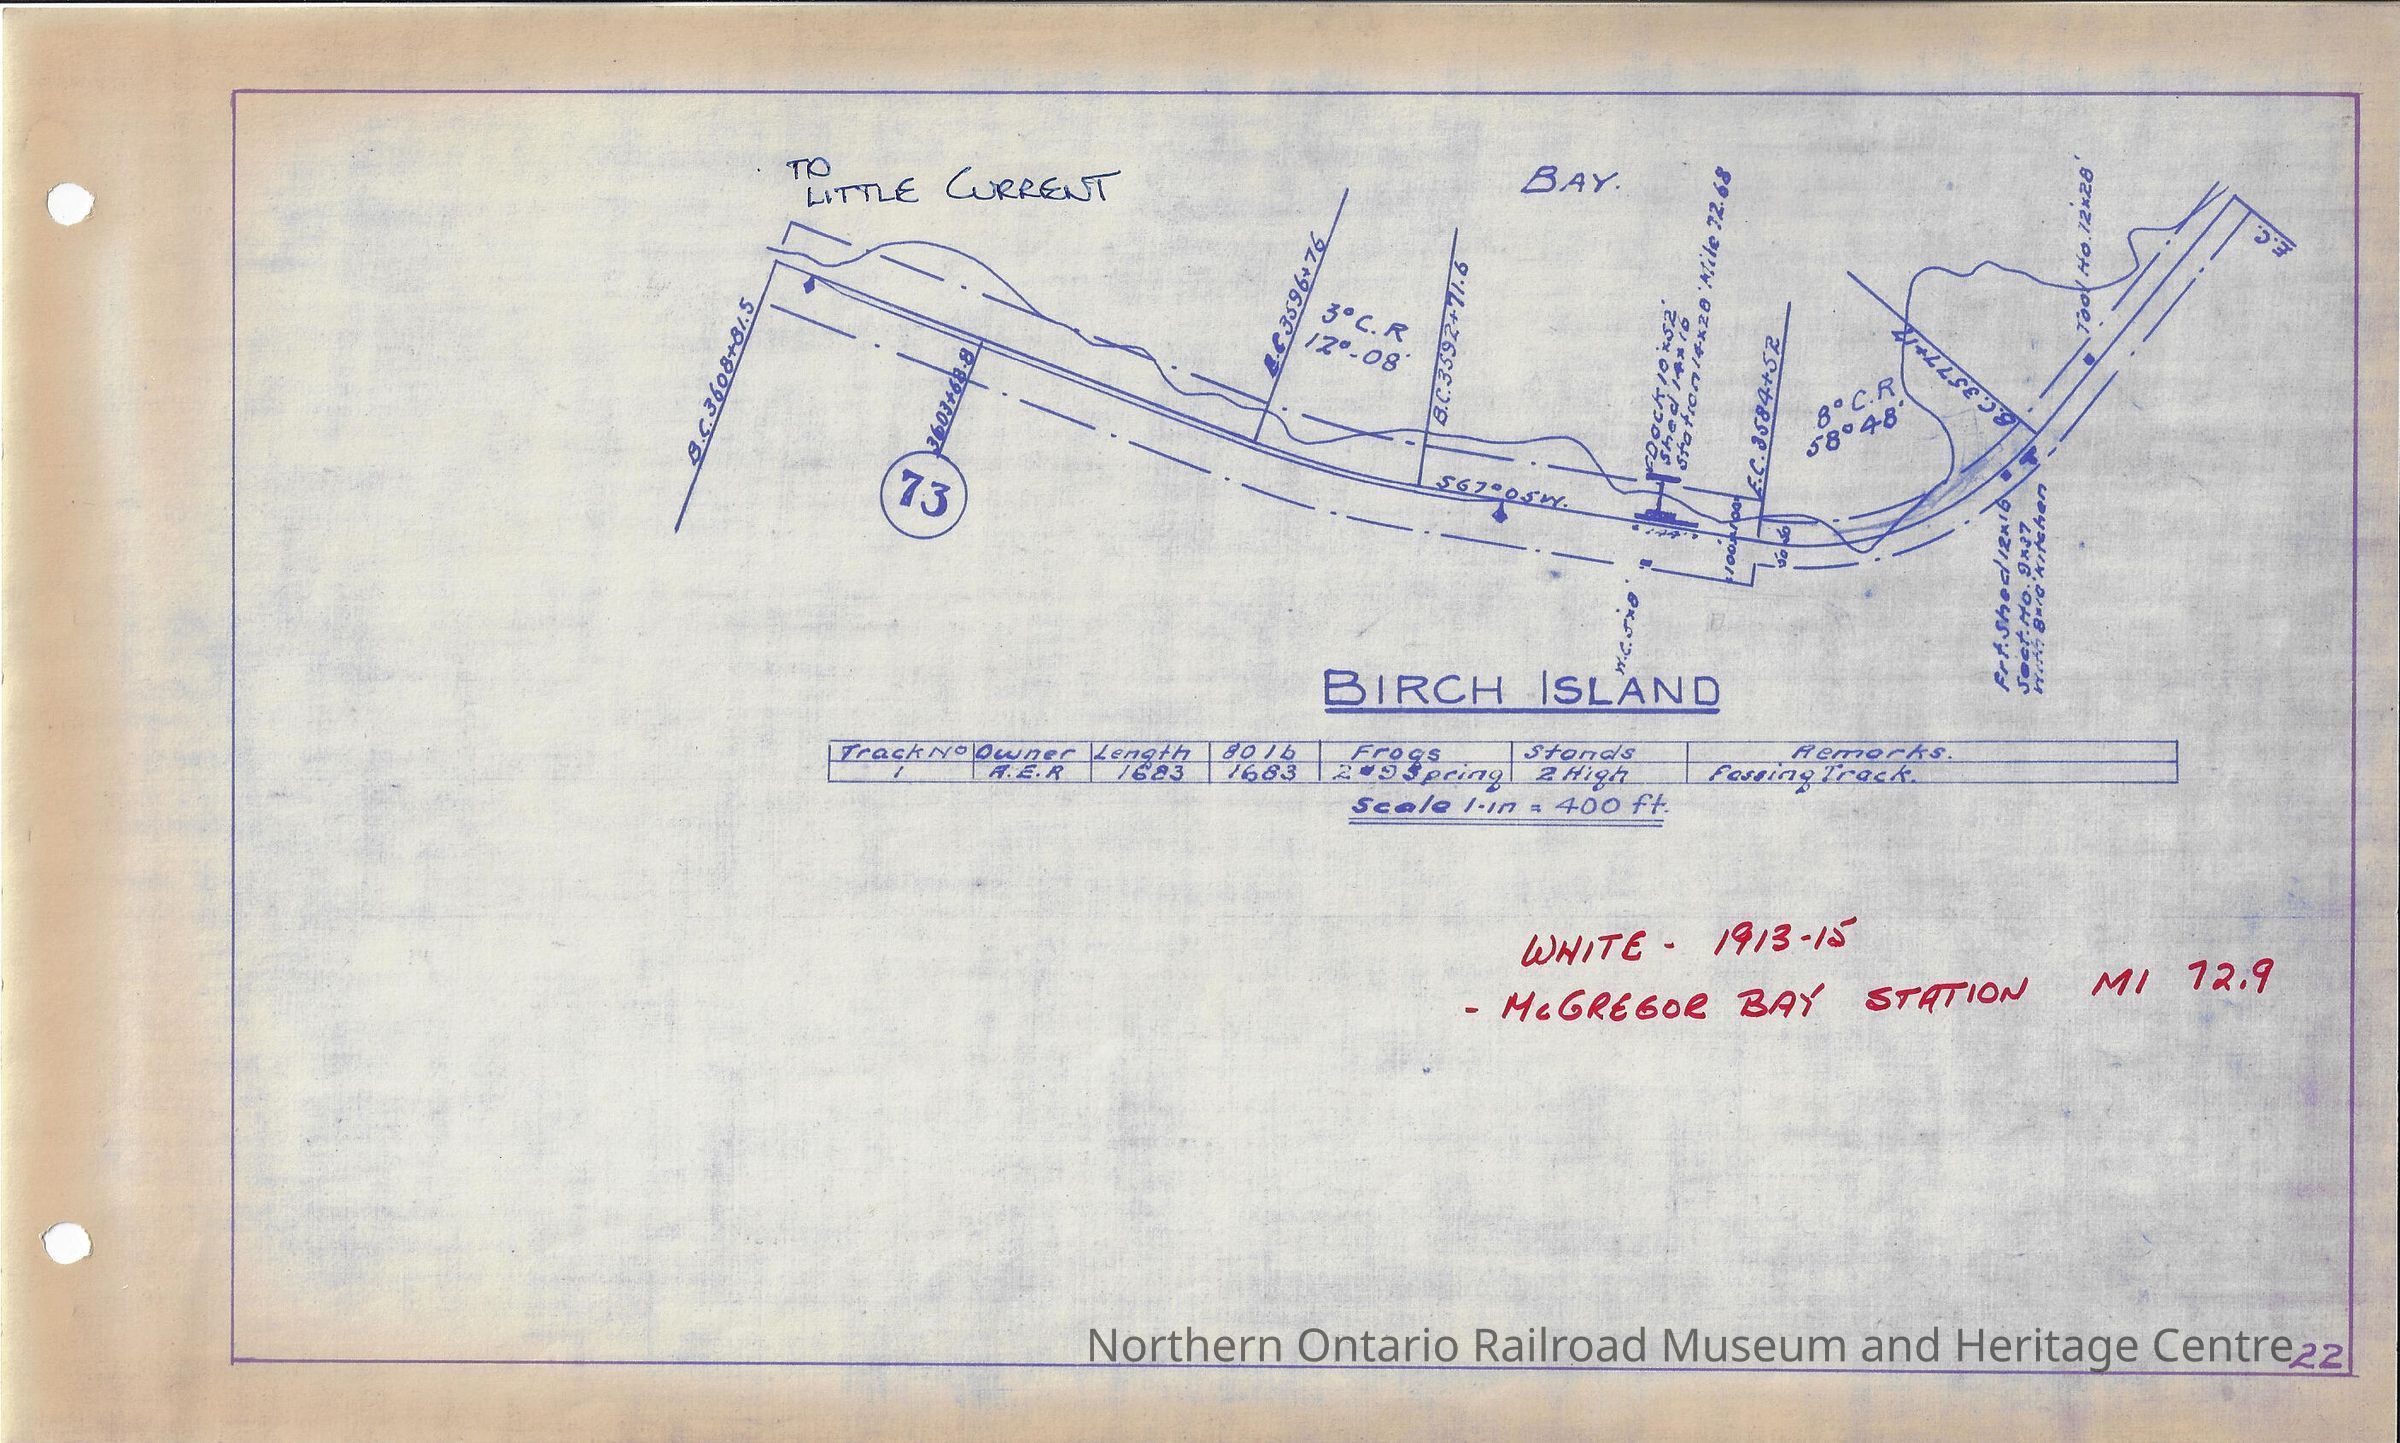 TO
LITTLE CURRENT
BAY.
B.C. 3608+81.5
3603+68.8
73
E.C. 3596+76
3° C. R
12°-08'
B.C. 3592+71.6
S67°05W.
Dock 10'x52'
Shed 14x16
Station 14x28' Mile 72.68
E.C. 3584+52
100 100
50 50
8° C. R
58° 48'
B.C. 3577+17
Tool Ho. 12'x28'
E.C.
W.C. 5x8'
Frt. Shed 12x16
Sect. Ho.
With Kitchen
BIRCH ISLAND
Track No Owner Length 80 lb Frogs Stands Remarks.
1 A.E.R 1683 1683 2 #9 Spring 2 High Passing Track.
Scale 1-in = 400 ft.
WHITE - 1913-15
- McGREGOR BAY STATION MI 72.9
Northern Ontario Railroad Museum and Heritage Centre
22